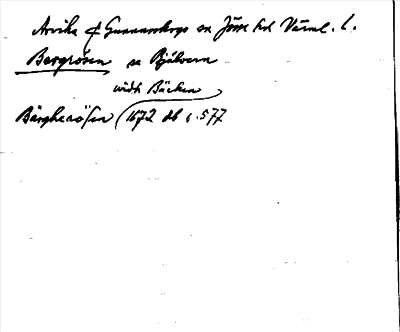 Arvika o Gunnarskogs sn Jösse hd Värml. l.
Bergrösen sn Bjälvern
widh Bäcken
Bärgherösen (1672 db s. 577